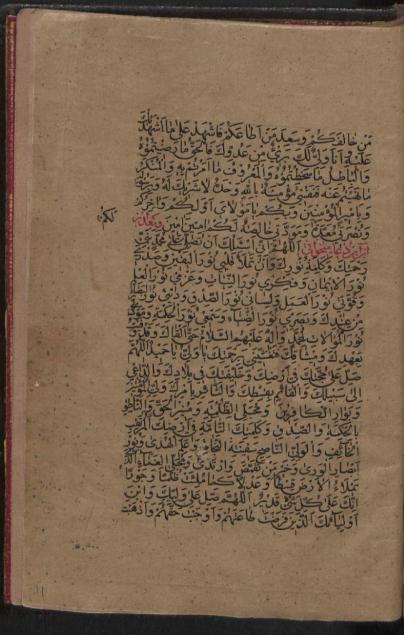 من خالفكم وسعد من اطاعكم فاشهد على ما اشهدتك
عليه وانا ولي لك بريء من عدوك فالحق ما رضيتموه
والباطل ما سخطتموه والمعروف ما امرتم به والمنكر
ما نهيتم عنه فنفسي مؤمنة بالله وحده لا شريك له وبرسوله
وبامير المؤمنين وبكم يا مولاي اولكم واخركم
ونصرتي معدة لكم ومودتي خالصة لكم امين امين وبعد
لكم
از اين دعا بخواني اللهم اني اسئلك ان تصلي على محمد نبي
رحمتك وكلمة نورك وان تملأ قلبي نور اليقين وصدري
نور الايمان وفكري نور النيات وعزمي نور العلم
وقوتي نور العمل ولساني نور الصدق وديني نور البصائر
من عندك وبصري نور الضياء وسمعي نور الحكمة ومودتي
نور الموالاة لمحمد واله عليهم السلام حتى القاك وقد وفيت
بعهدك وميثاقك فتغشيني رحمتك يا ولي يا حميد اللهم
صل على محمد حجتك في ارضك وخليفتك في بلادك والداعي
الى سبيلك والقائم بقسطك والثائر بامرك ولي المؤمنين
وبوار الكافرين ومجلي الظلمة ومنير الحق والناطق
بالحكمة والصدق وكلمتك التامة في ارضك المرتقب
الخائف والولي الناصح سفينة النجاة وعلم الهدى ونور
ابصار الورى وخير من تقمص وارتدى ومجلي العماء الذي
يملأ الارض قسطا وعدلا كما ملئت ظلما وجورا
انك على كل شيء قدير اللهم صل على وليك وابن
اوليائك الذين فرضت طاعتهم واوجبت حقهم واذهبت